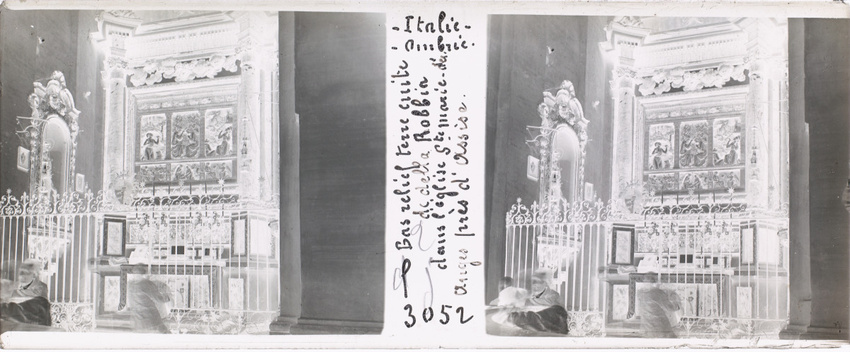 - Italie -
- Ombrie -
Bas relief terre cuite
de della Robbia
dans l'église Ste marie-des
Anges près d'Assise.
3052